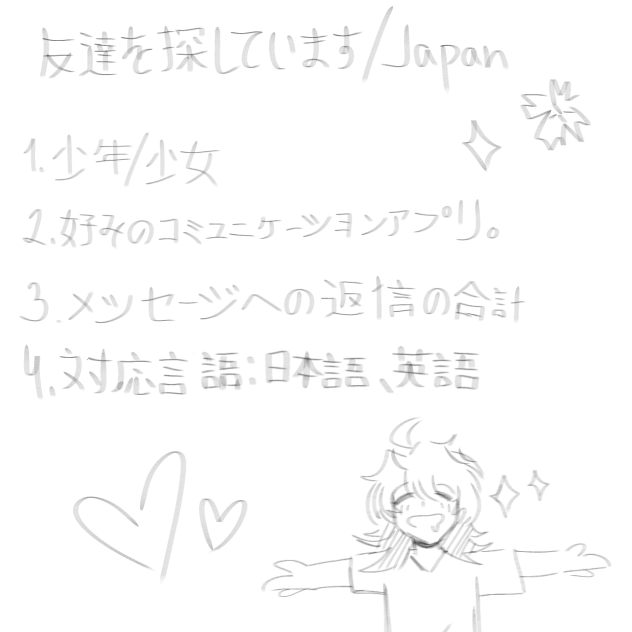 友達を探しています/Japan
1.少年/少女
2.好みのコミュニケーションアプリ。
3.メッセージへの返信の合計
4.対応言語:日本語、英語